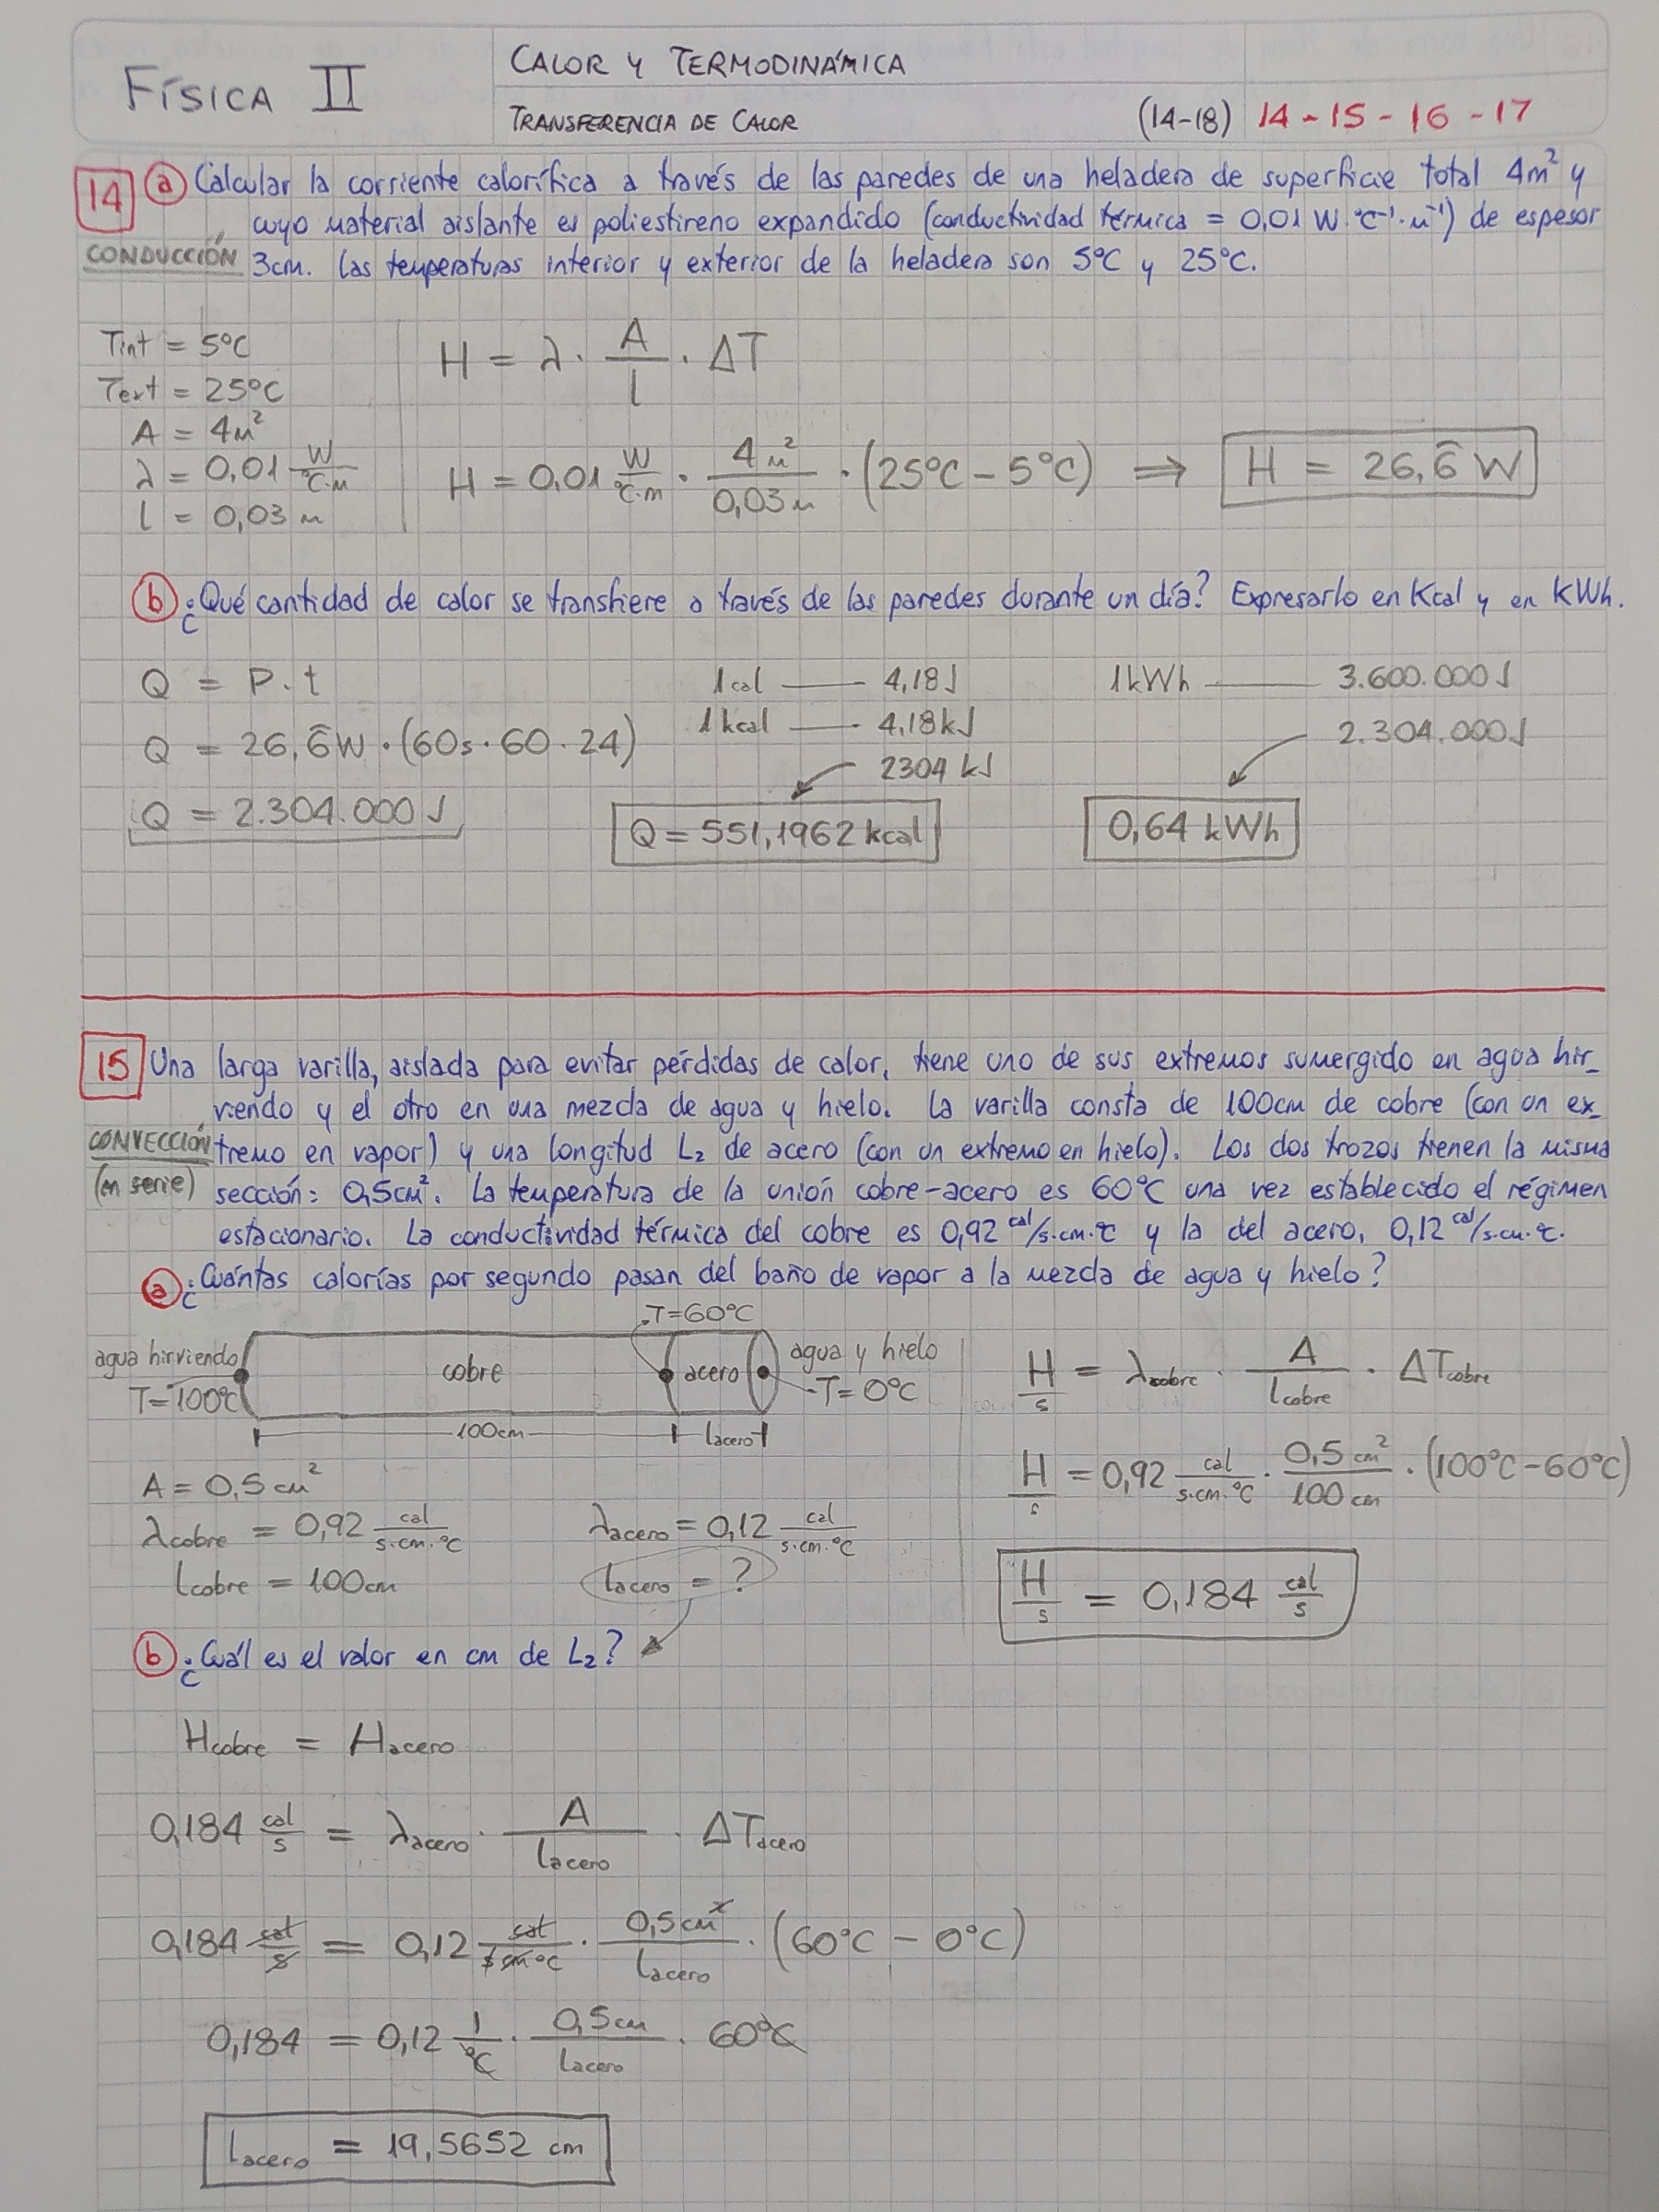 FÍSICA II
CALOR Y TERMODINÁMICA
TRANSFERENCIA DE CALOR (14-18) 14 - 15 - 16 - 17
14 a Calcular la corriente calorífica a través de las paredes de una heladera de superficie total 4m² y
cuyo material aislante es poliestireno expandido (conductividad térmica = 0,01 W·°C⁻¹·m⁻¹) de espesor
CONDUCCIÓN 3cm. Las temperaturas interior y exterior de la heladera son 5°C y 25°C.
Tint = 5°C
Text = 25°C
A = 4m²
λ = 0,01 W/°C·m
l = 0,03 m
H = λ · A/l · ΔT
H = 0,01 W/°C·m · 4m²/0,03m · (25°C - 5°C) ⇒ H = 26,6̂ W
b ¿Qué cantidad de calor se transfiere a través de las paredes durante un día? Expresarlo en Kcal y en kWh.
Q = P.t
Q = 26,6̂W · (60s · 60 · 24)
Q = 2.304.000 J
1 cal — 4,18J
1 kcal — 4,18kJ
2304 kJ
Q = 551,1962 kcal
1kWh — 3.600.000J
2.304.000J
0,64 kWh
15 Una larga varilla, aislada para evitar pérdidas de calor, tiene uno de sus extremos sumergido en agua hir-
viendo y el otro en una mezcla de agua y hielo. La varilla consta de 100cm de cobre (con un ex-
CONVECCIÓN tremo en vapor) y una longitud L₂ de acero (con un extremo en hielo). Los dos trozos tienen la misma
(en serie) sección: 0,5cm². La temperatura de la unión cobre-acero es 60°C una vez establecido el régimen
estacionario. La conductividad térmica del cobre es 0,92 cal/s.cm.°C y la del acero, 0,12 cal/s.cm.°C.
a ¿Cuántas calorías por segundo pasan del baño de vapor a la mezcla de agua y hielo?
T=60°C
agua hirviendo
T=100°C
cobre
acero
agua y hielo
T=0°C
100cm
lacero
A = 0,5 cm²
λcobre = 0,92 cal/s·cm·°C
lcobre = 100cm
λacero = 0,12 cal/s·cm·°C
lacero = ?
H/s = λcobre · A/lcobre · ΔTcobre
H/s = 0,92 cal/s·cm·°C · 0,5cm²/100cm · (100°C-60°C)
H/s = 0,184 cal/s
b ¿Cuál es el valor en cm de L₂?
Hcobre = Hacero
0,184 cal/s = λacero · A/lacero · ΔTacero
0,184 cal/s = 0,12 cal/s cm °C · 0,5cm²/lacero · (60°C - 0°C)
0,184 = 0,12 1/°C · 0,5cm/lacero · 60°C
lacero = 19,5652 cm